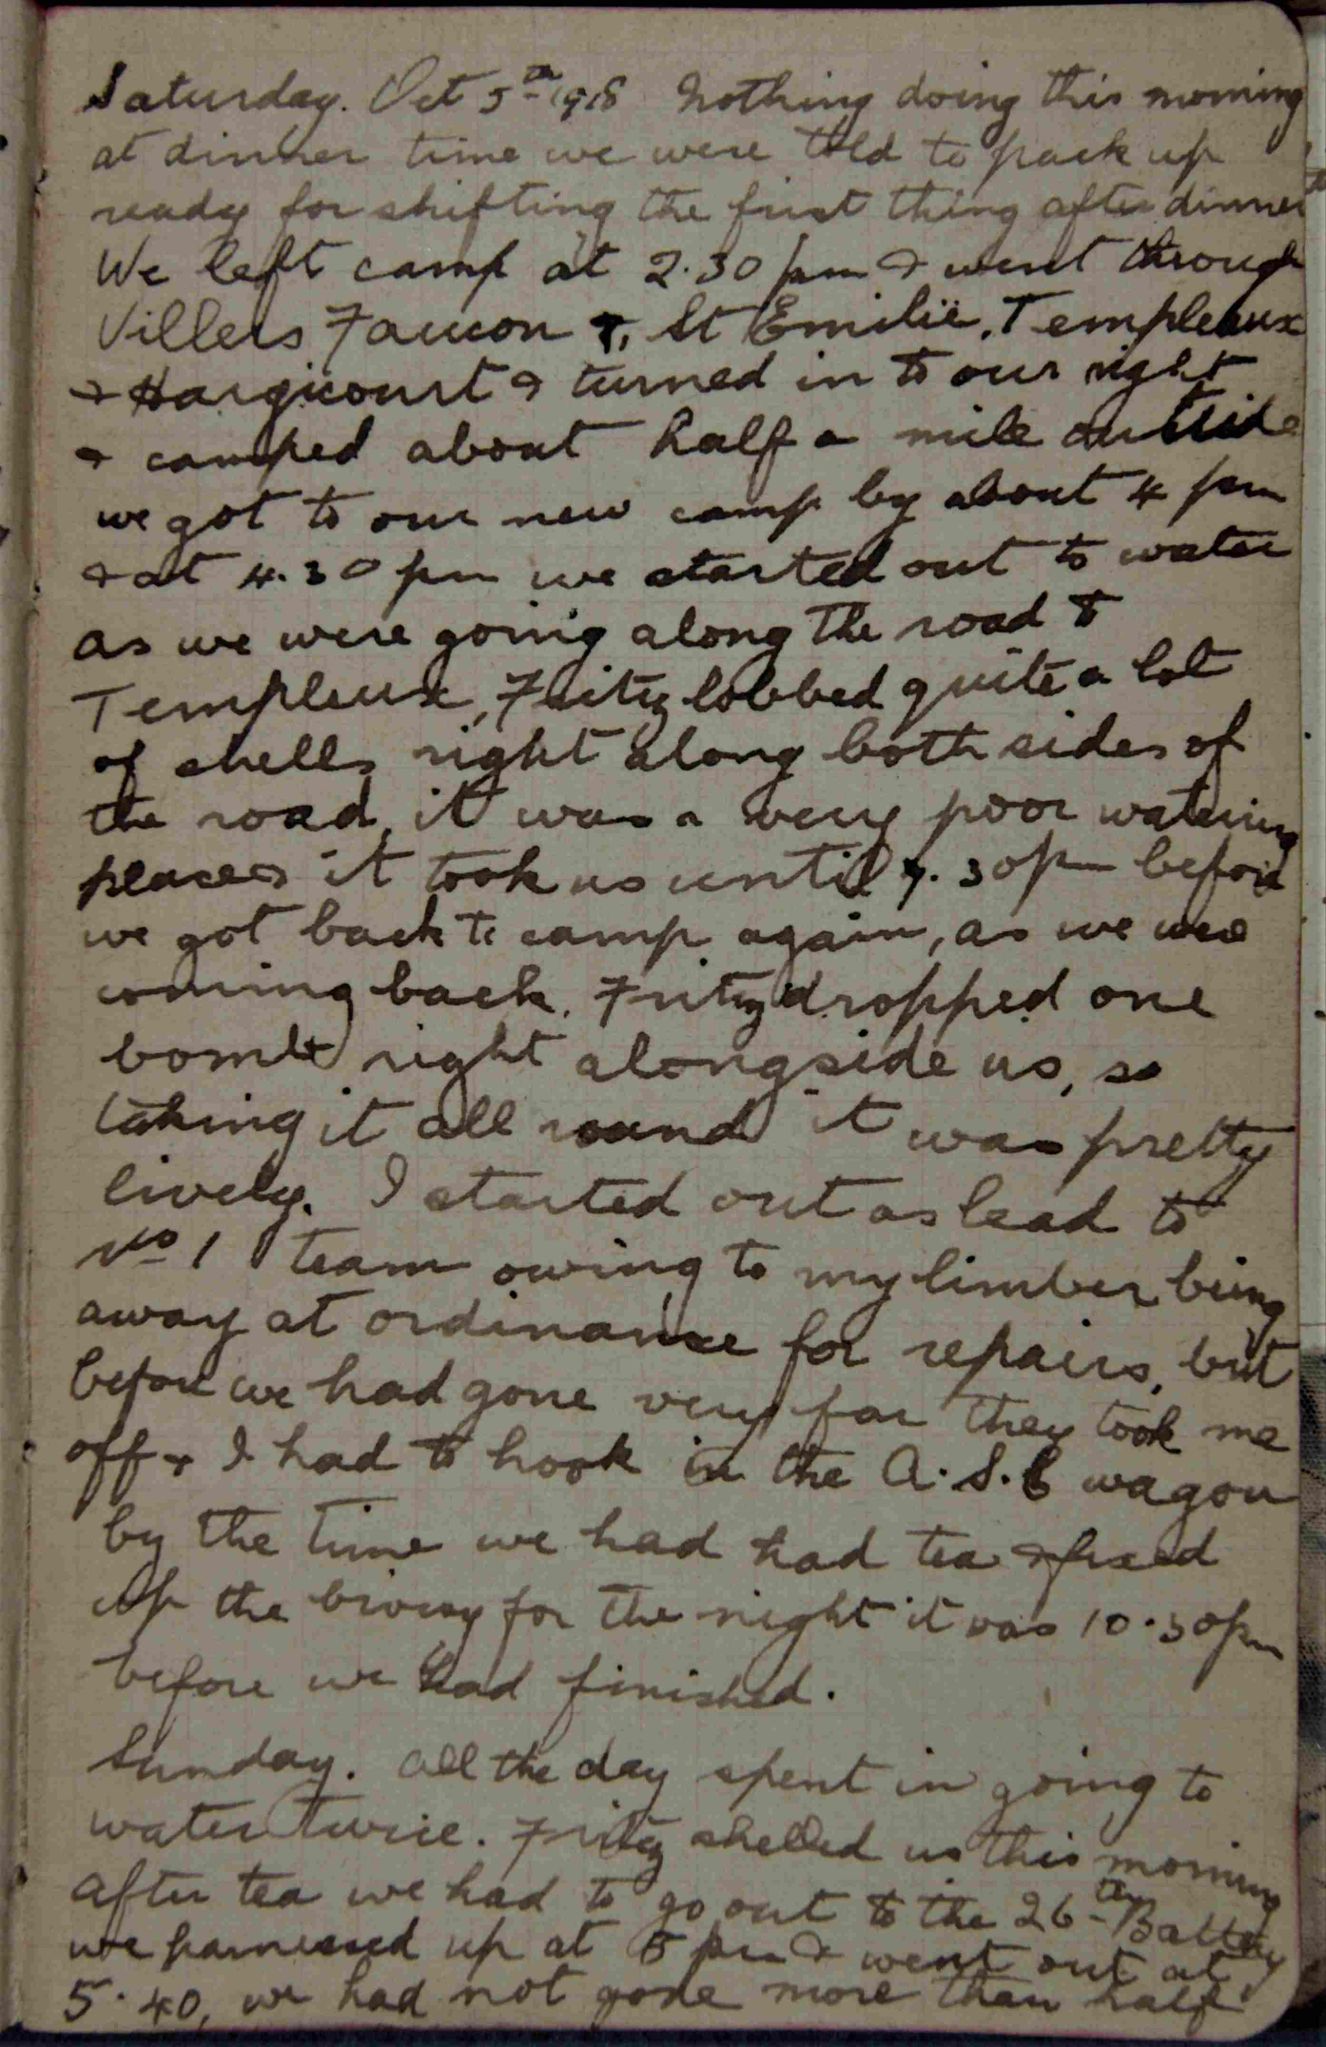 Saturday. Oct 5th 1918 Nothing doing this morning
at dinner time we were told to pack up
ready for shifting the first thing after dinner
We left camp at 2.30 pm & went through
Villers Faucon, St Emilië, Templeux
& Hargicourt & turned in to our right
& camped about half a mile outside
we got to our new camp by about 4 pm
& at 4.30 pm we started out to water
as we were going along the road to
Templeux, Fritz lobbed quite a lot
of shells right along both sides of
the road, it was a very poor watering
place & it took us until 7.30 pm before
we got back to camp again, as we were
coming back. Fritz dropped one
bomb right alongside us, so
taking it all round it was pretty
lively. I started out as lead to
No 1 team owing to my limber being
away at ordinance for repairs, but
before we had gone very far they took me
off & I had to hook in the A.S.C wagon
by the time we had had tea & fixed
up the bivvy for the night it was 10.30 pm
before we had finished.
Sunday. All the day spent in going to
water twice. Fritz shelled us this morning
after tea we had to go out to the 26th Battery
we harnessed up at 5 pm & went out at
5.40, we had not gone more than half